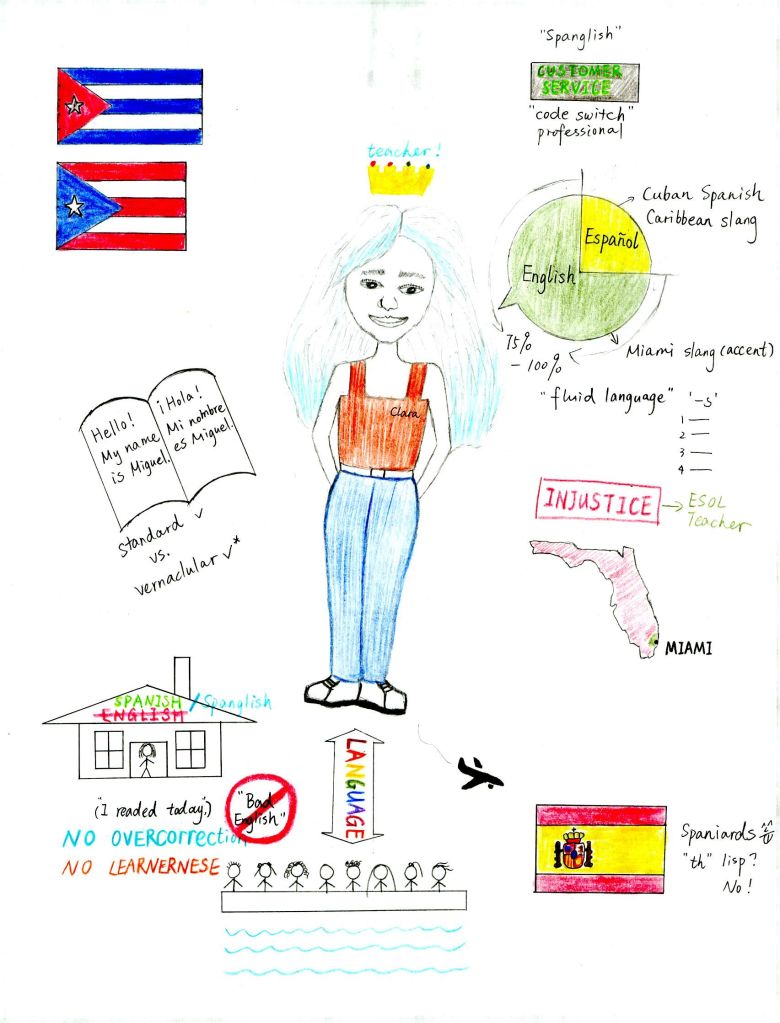 "Spanglish"
CUSTOMER
SERVICE
"code switch"
professional
teacher!
Cuban Spanish
Caribbean slang
Español
English
75%
- 100%
Miami slang (accent)
"fluid language"
'-s'
1
2
3
4
Clara
Hello!
My name
is Miguel.
¡Hola!
Mi nombre
es Miguel.
Standard ✓
vs.
vernaclular ✓*
INJUSTICE → ESOL
Teacher
MIAMI
SPANISH / Spanglish
ENGLISH
LANGUAGE
("I readed today".)
"Bad
English"
NO OVERCORRECTION
NO LEARNERNESE
Spaniards
"th" lisp?
No!